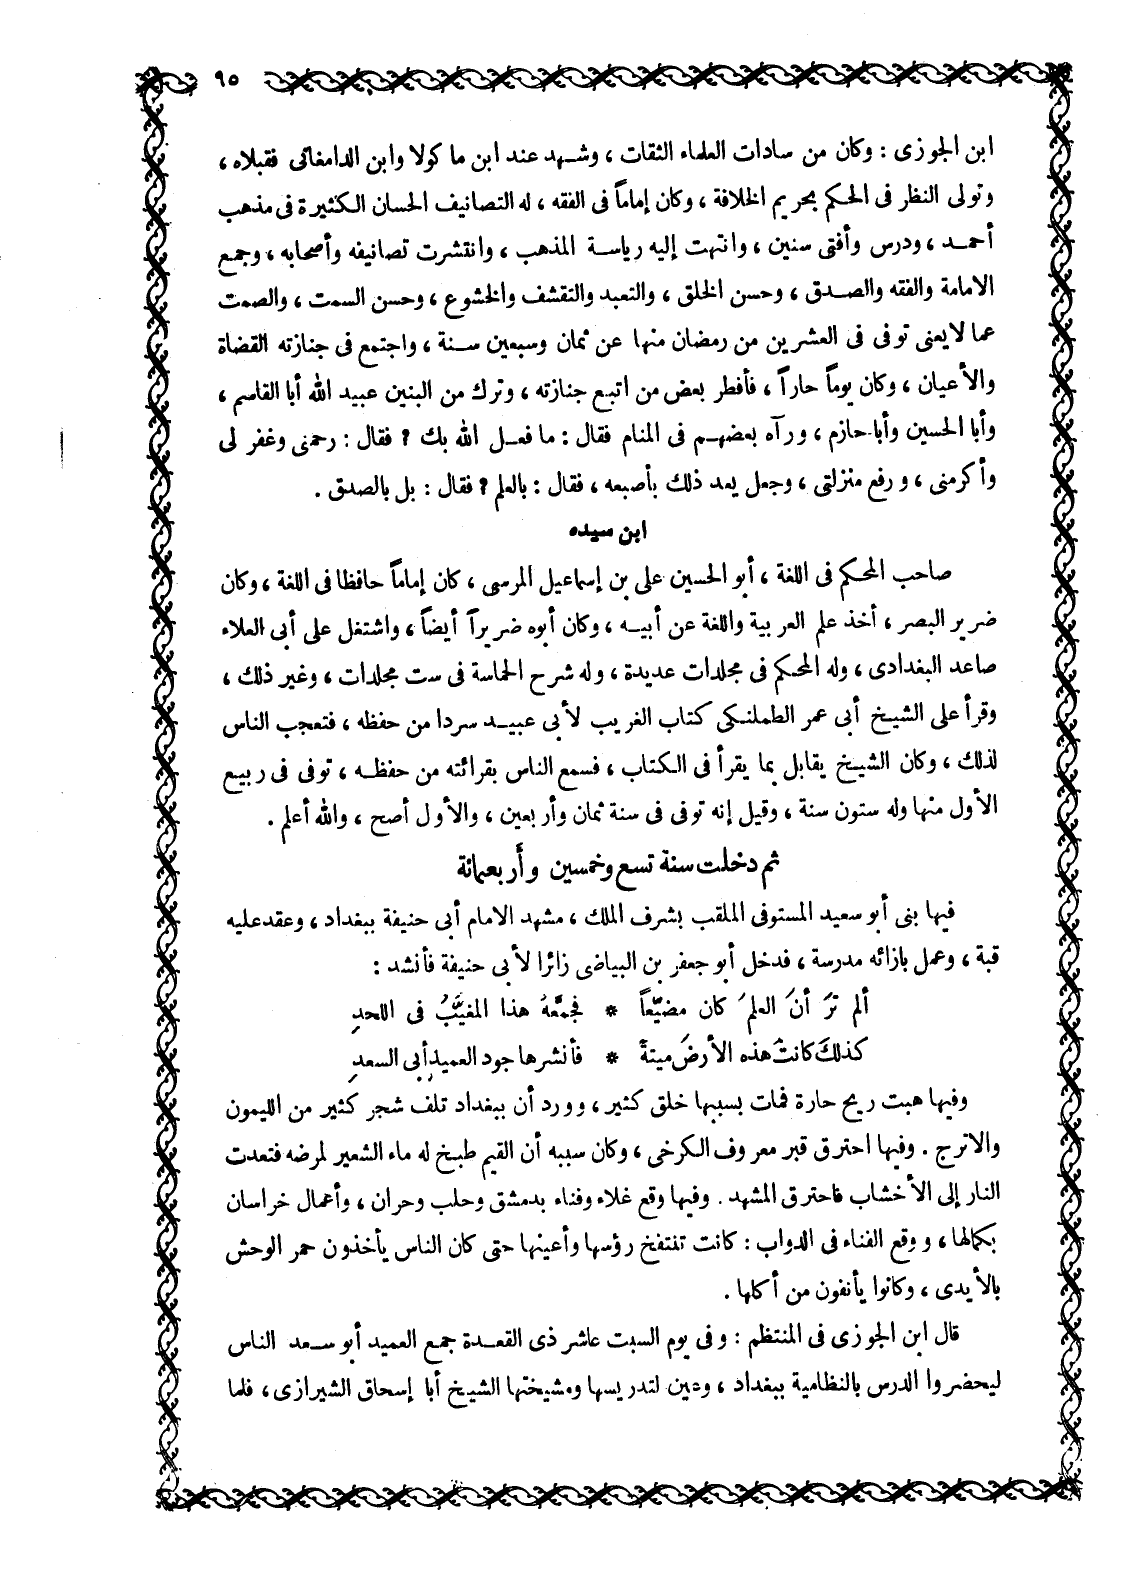 ٩٥
ابن الجوزى : وكان من سادات العلماء الثقات ، وشهد عند ابن ما كولا وابن الدامغانى فقبلاه ،
وتولى النظر فى الحكم بحريم الخلافة ، وكان إماماً فى الفقه ، له التصانيف الحسان الكثيرة فى مذهب
أحمد ، ودرس وأفتى سنين ، وانتهت إليه رياسة المذهب ، وانتشرت تصانيفه وأصحابه ، وجمع
الامامة والفقه والصدق ، وحسن الخلق ، والتعبد والتقشف والخشوع ، وحسن السمت ، والصمت
عما لا يعنى توفى فى العشرين من رمضان منها عن ثمان وسبعين سنة ، واجتمع فى جنازته القضاة
والأعيان ، وكان يوماً حاراً ، فأفطر بعض من اتبع جنازته ، وترك من البنين عبيد الله أبا القاسم ،
وأبا الحسين وأبا حازم ، ورآه بعضهم فى المنام فقال : ما فعل الله بك ؟ فقال : رحمنى وغفر لى
وأكرمنى ، ورفع منزلتى ، وجعل يعد ذلك بأصبعه ، فقال : بالعلم ؟ فقال : بل بالصدق .
ابن سيده
صاحب المحكم فى اللغة ، أبو الحسين على بن إسماعيل المرسى ، كان إماماً حافظا فى اللغة ، وكان
ضرير البصر ، أخذ علم العربية واللغة عن أبيه ، وكان أبوه ضريراً أيضاً ، واشتغل على أبى العلاء
صاعد البغدادى ، وله المحكم فى مجلدات عديدة ، وله شرح الحماسة فى ست مجلدات ، وغير ذلك ،
وقرأ على الشيخ أبى عمر الطملنكى كتاب الغريب لأبى عبيد سردا من حفظه ، فتعجب الناس
لذلك ، وكان الشيخ يقابل بما يقرأ فى الكتاب ، فسمع الناس بقرائته من حفظه ، توفى فى ربيع
الأول منها وله ستون سنة ، وقيل إنه توفى فى سنة ثمان وأربعين ، والأول أصح ، والله أعلم .
ثم دخلت سنة تسع وخمسين وأربعمائة
فيها بنى أبو سعيد المستوفى الملقب بشرف الملك ، مشهد الامام أبى حنيفة ببغداد ، وعقد عليه
قبة ، وعمل بازائه مدرسة ، فدخل أبو جعفر بن البياضى زائرا لأبى حنيفة فأنشد :
ألم ترَ أنَ العلمَ كان مضيّعاً * فجمَّعهُ هذا المغيَّبُ فى اللحدِ
كذلكَ كانتْ هذه الأرضَ ميتةً * فأنشرها جود العميدِ أبى السعدِ
وفيها هبت ريح حارة فمات بسببها خلق كثير ، وورد أن ببغداد تلف شجر كثير من الليمون
والاترج . وفيها احترق قبر معروف الكرخى ، وكان سببه أن القيم طبخ له ماء الشعير لمرضه فتعدت
النار إلى الأخشاب فاحترق المشهد . وفيها وقع غلاء وفناء بدمشق وحلب وحران ، وأعمال خراسان
بكمالها ، ووقع الفناء فى الدواب : كانت تنتفخ رؤسها وأعينها حتى كان الناس يأخذون حمر الوحش
بالأيدى ، وكانوا يأنفون من أكلها .
قال ابن الجوزى فى المنتظم : وفى يوم السبت عاشر ذى القعدة جمع العميد أبو سعد الناس
ليحضروا الدرس بالنظامية ببغداد ، وعين لتدريسها ومشيختها الشيخ أبا إسحاق الشيرازى ، فلما